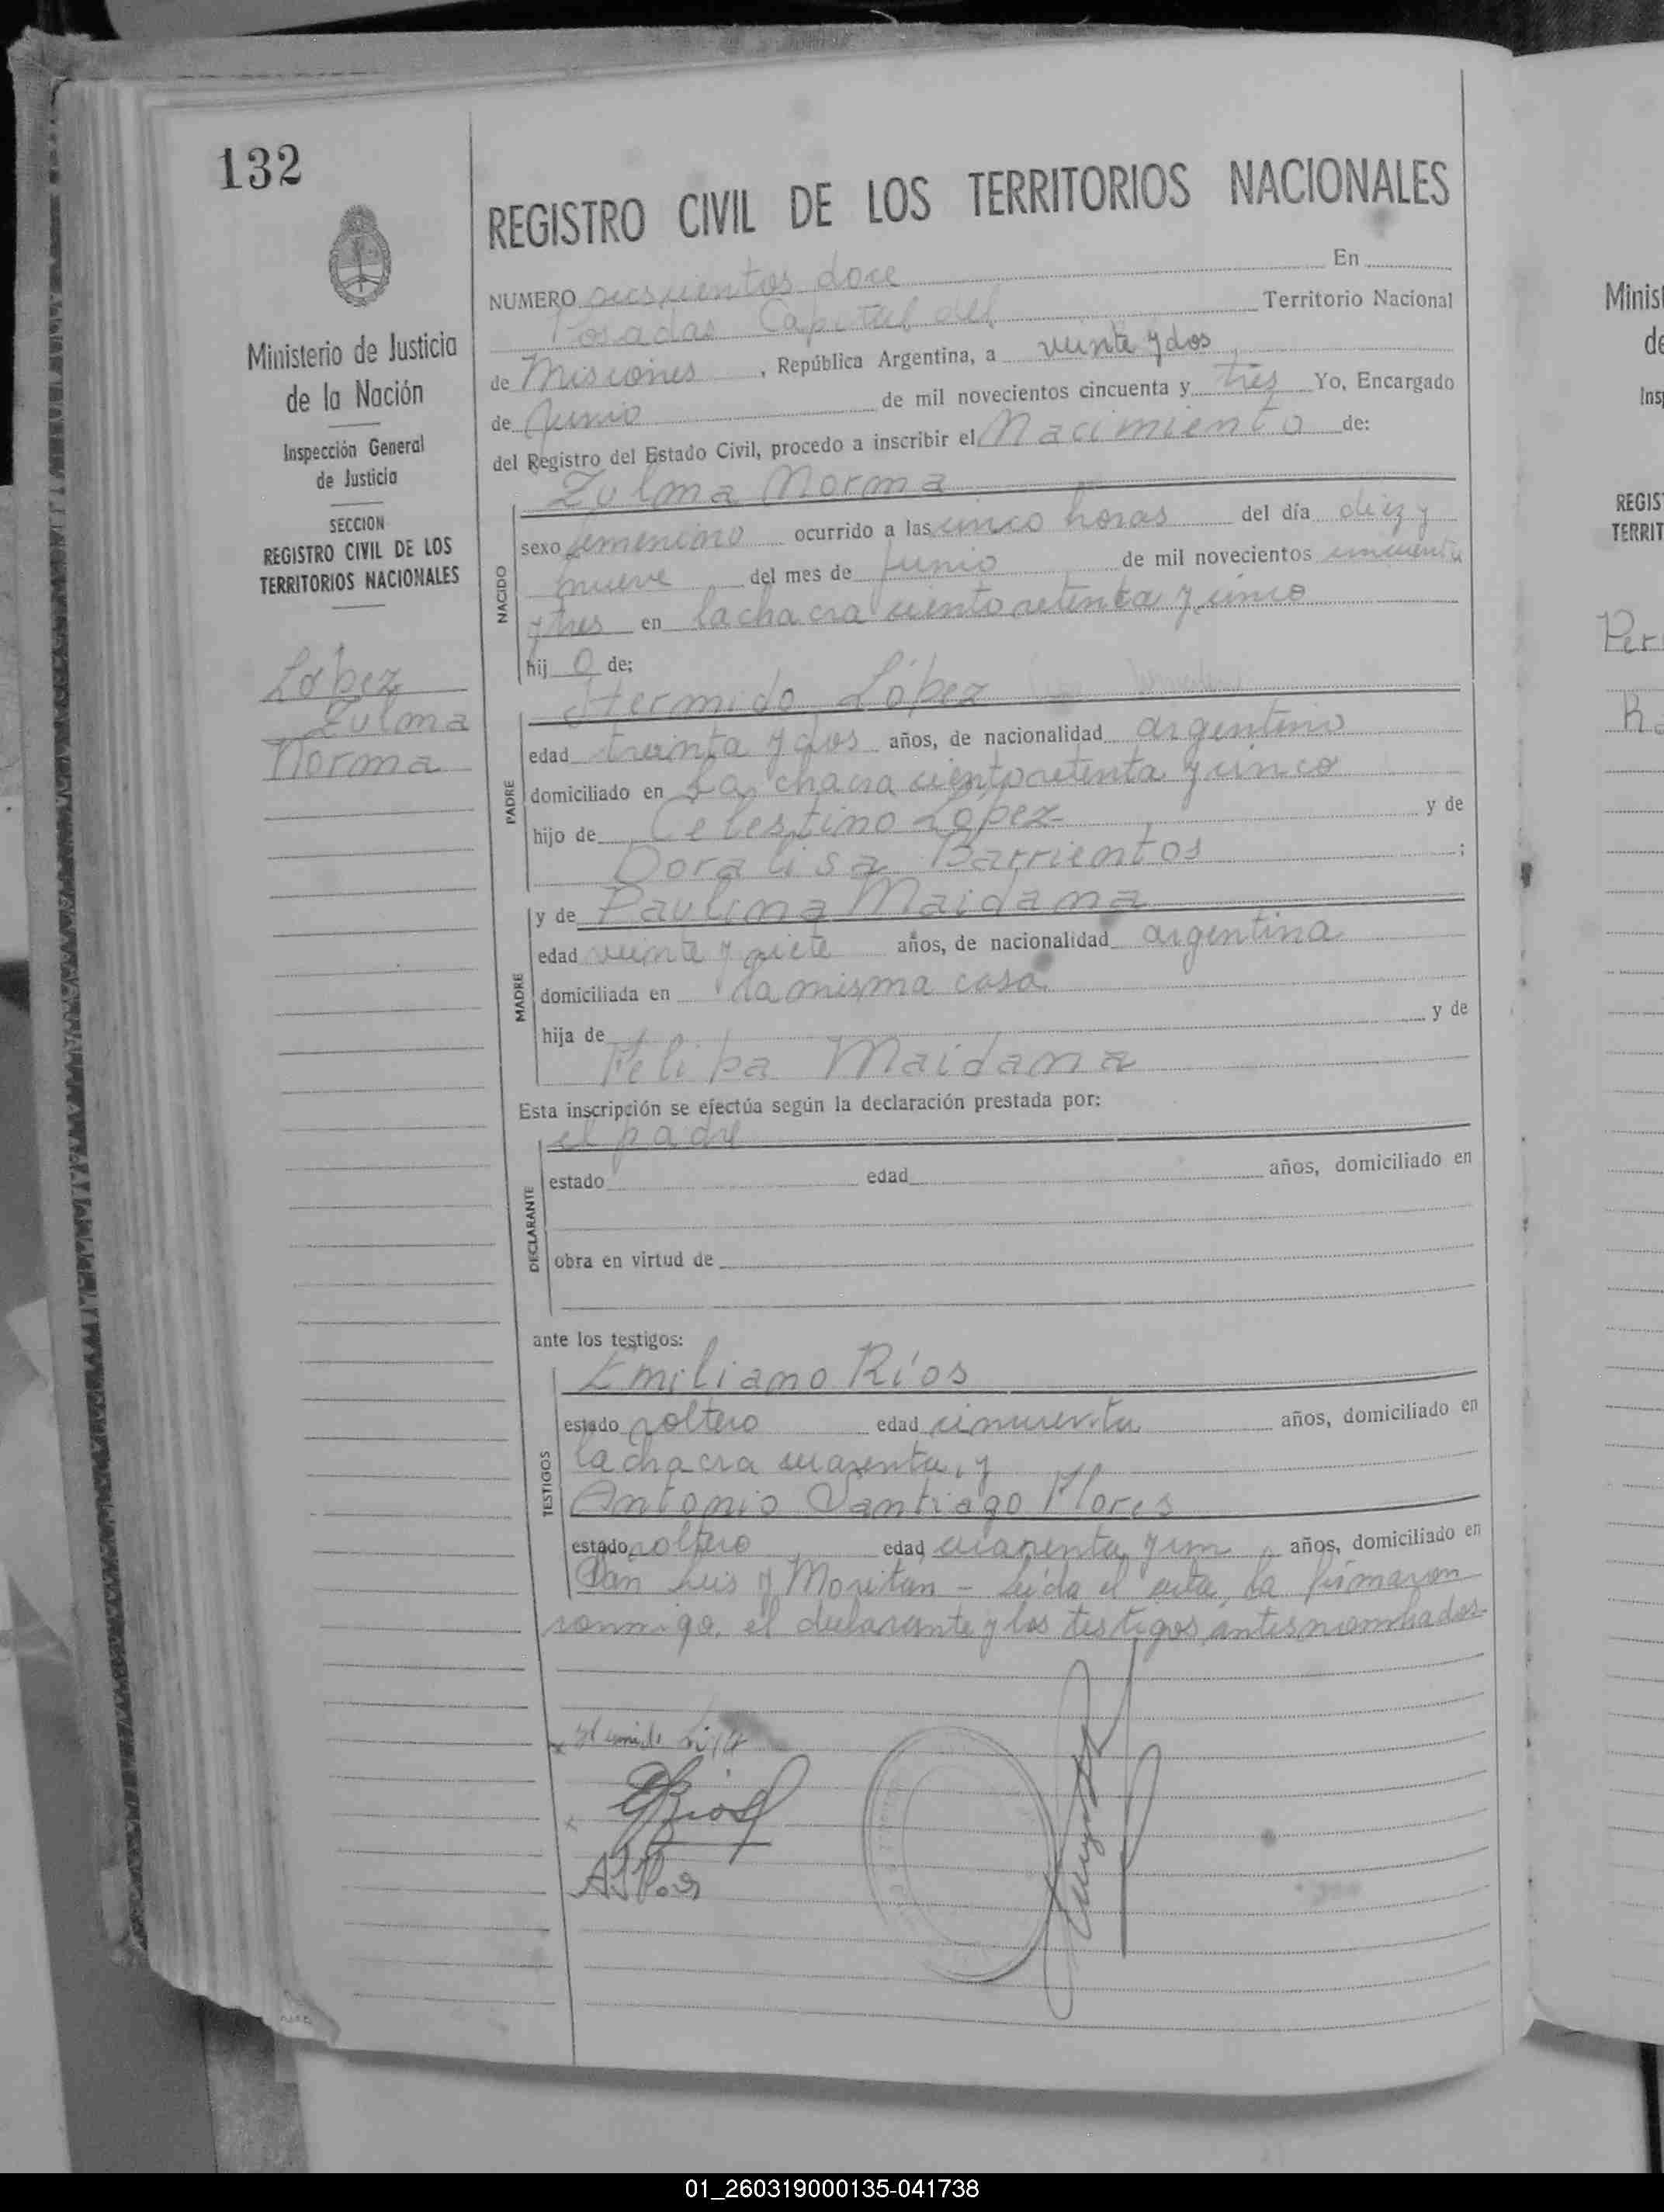 132
REGISTRO CIVIL DE LOS TERRITORIOS NACIONALES
Ministerio de Justicia
de la Nación
Inspección General
de Justicia
SECCION
REGISTRO CIVIL DE LOS
TERRITORIOS NACIONALES
López
Zulma
Norma
NUMERO seiscientos doce En
Posadas Capital del Territorio Nacional
de Misiones, República Argentina, a veinte y dos
de Junio de mil novecientos cincuenta y tres Yo, Encargado
del Registro del Estado Civil, procedo a inscribir el Nacimiento de:
NACIDO
Zulma Norma
sexo femenino ocurrido a las cinco horas del día diez y
nueve del mes de Junio de mil novecientos cincuenta
y tres en la chacra ciento setenta y cinco
hij a de:
PADRE
Hermido López
edad treinta y dos años, de nacionalidad argentino
domiciliado en La chacra ciento setenta y cinco
hijo de Celestino López y de
Doralisa Barrientos ;
MADRE
y de Paulina Maidana
edad veinte y siete años, de nacionalidad argentina
domiciliada en la misma casa
hija de y de
Felipa Maidana
Esta inscripción se efectúa según la declaración prestada por:
DECLARANTE
el padre
estado edad años, domiciliado en
obra en virtud de
ante los testigos:
TESTIGOS
Emiliano Ríos
estado soltero edad cincuenta años, domiciliado en
la chacra cuarenta, y
Antonio Santiago Flores
estado soltero edad cuarenta y un años, domiciliado en
San Luis y Moritan - Leída el acta, la firmaron
conmigo, el declarante y los testigos antes nombrados-
E Rios
Minist
de
Insp
REGIS
TERRIT
Per
01_260319000135-041738